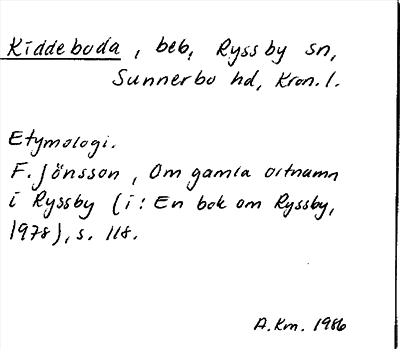 Kiddeboda, beb, Ryssby sn,
Sunnerbo hd, Kron. l.
Etymologi.
F. Jönsson, Om gamla ortnamn
i Ryssby (i: En bok om Ryssby,
1978), s. 118.
A.Km. 1986